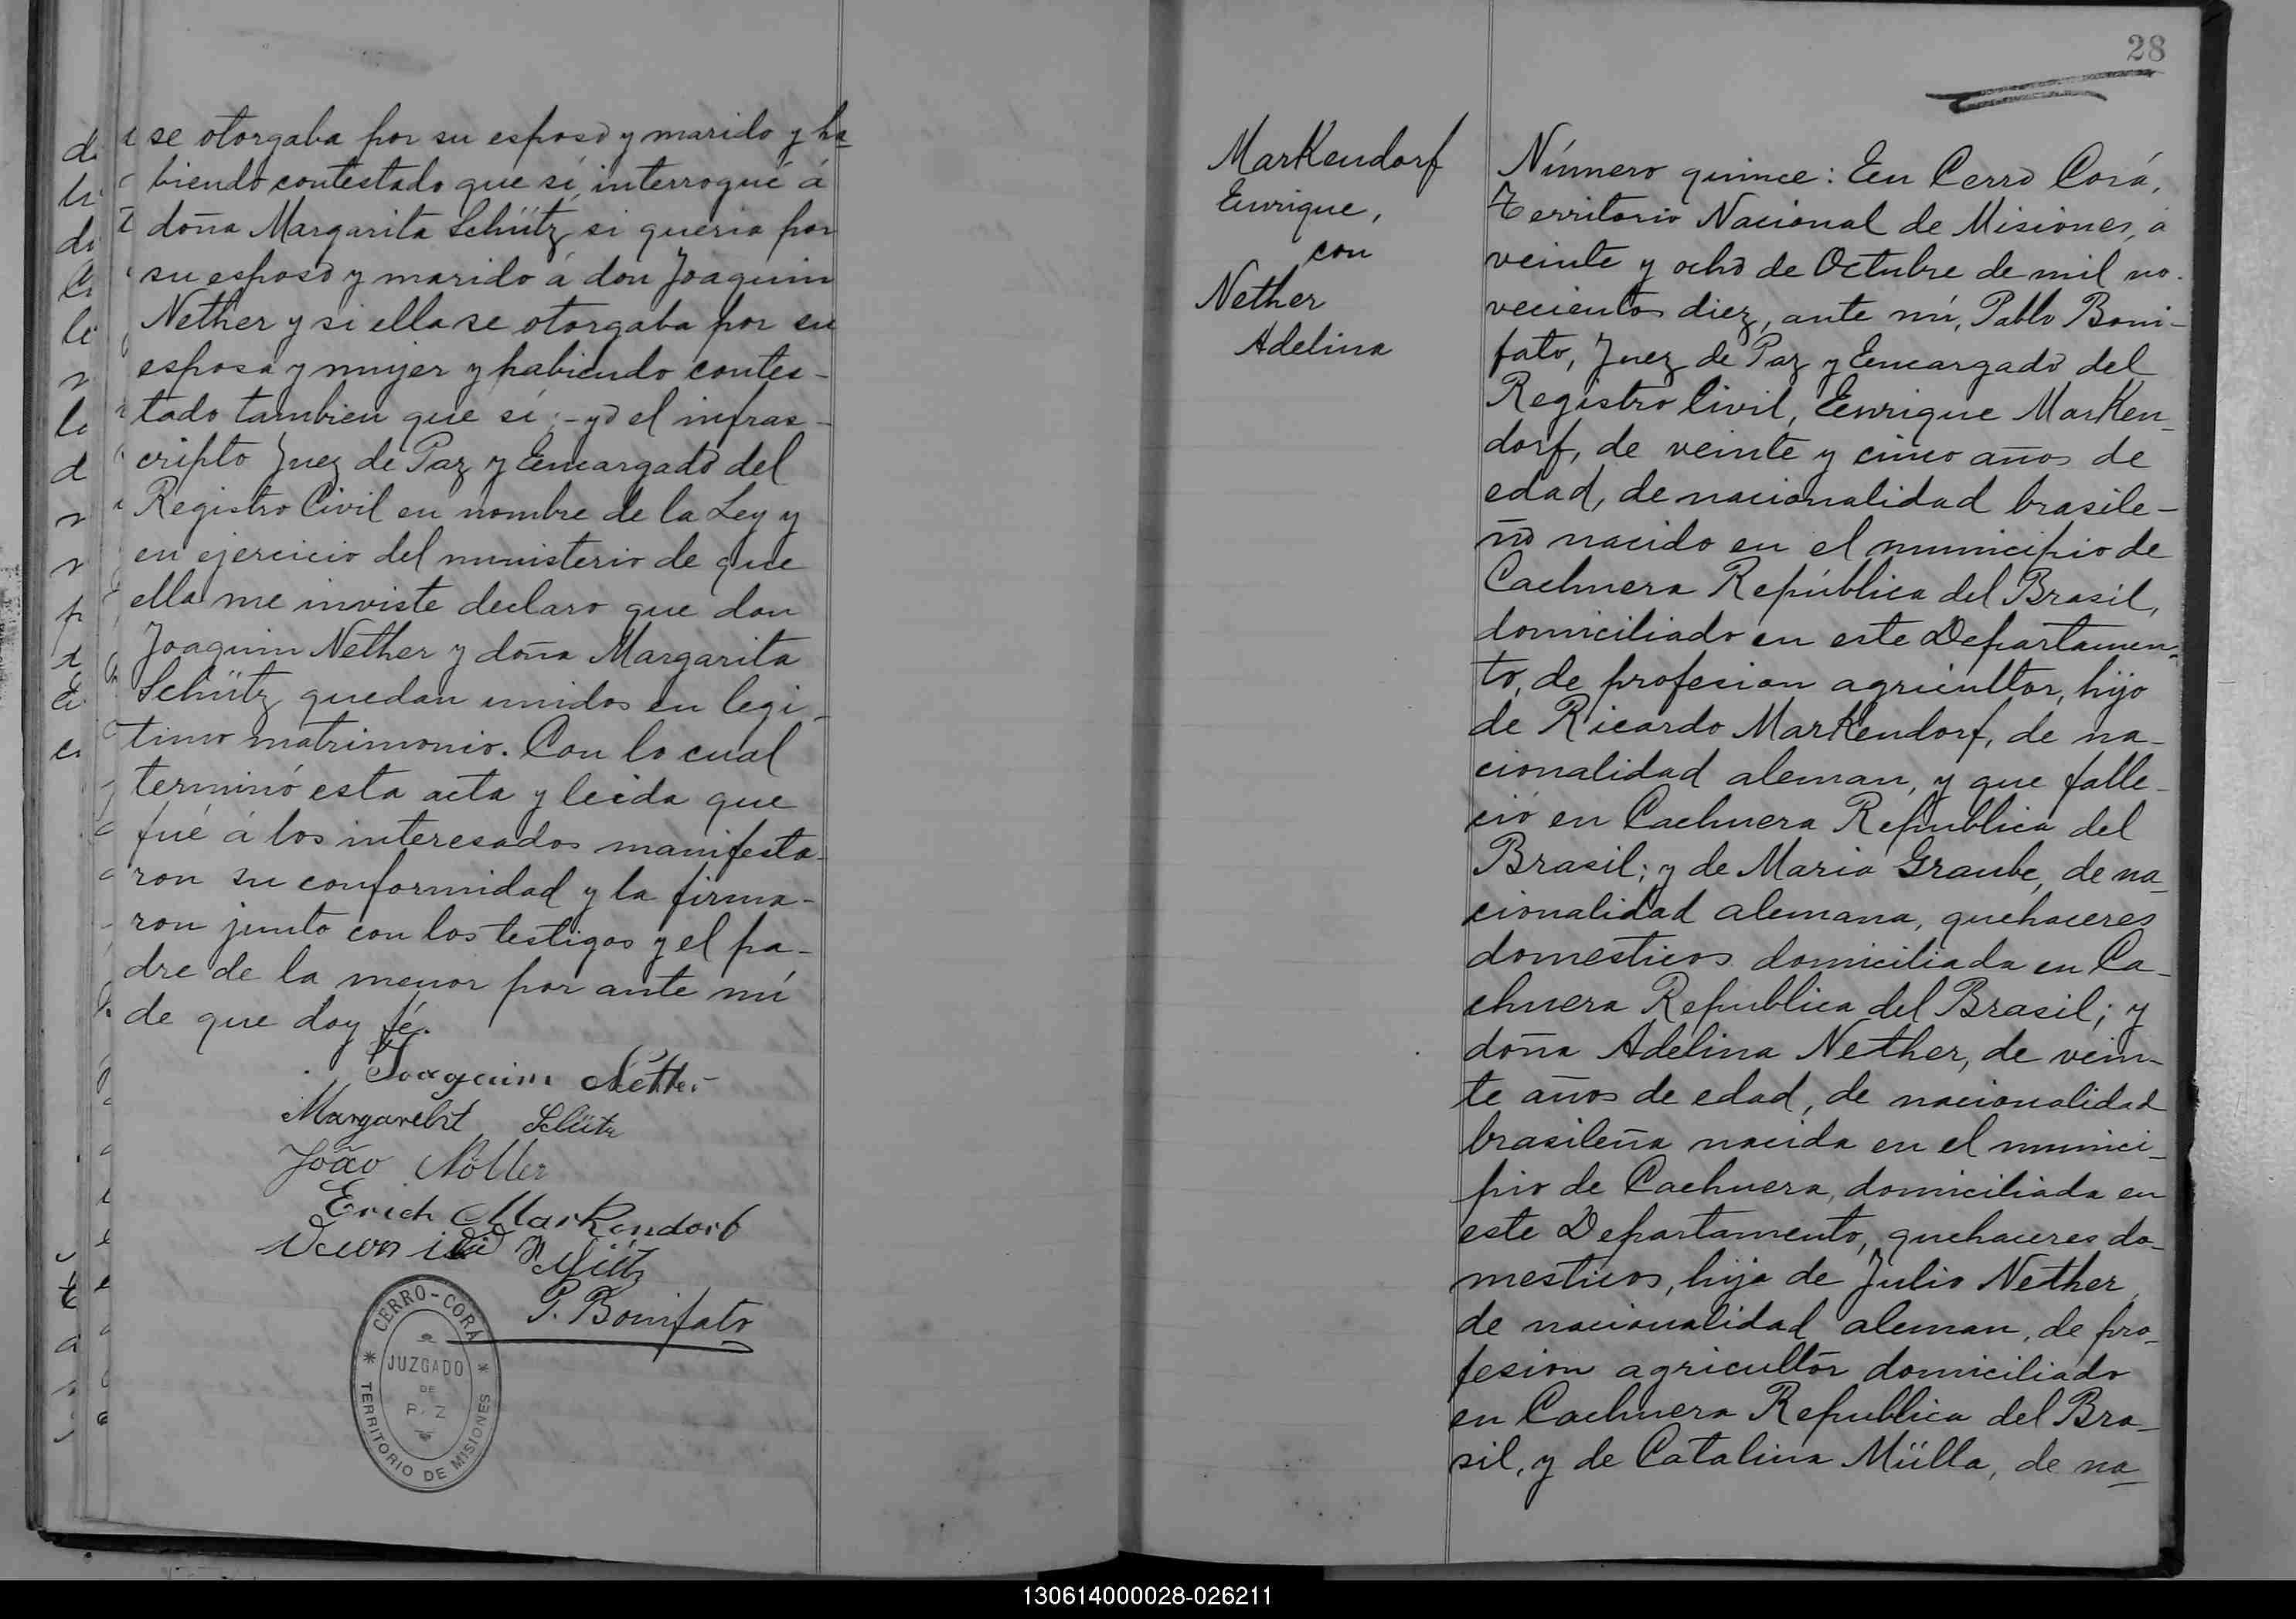 se otorgaba por su esposo y marido y ha-
biendo contestado que sí, interrogué á
doña Margarita Schütz si queria por
su esposo y marido á don Joaquin
Nether y si ella se otorgaba por su
esposa y mujer y habiendo contes-
tado tambien que sí; - yo el infras-
cripto Juez de Paz y Encargado del
Registro Civil en nombre de la Ley y
en ejercicio del ministerio de que
ella me inviste declaro que don
Joaquin Nether y doña Margarita
Schütz quedan unidos en legi-
timo matrimonio. Con lo cual
terminó esta acta y leida que
fué á los interesados manifesta-
ron su conformidad y la firma-
ron junto con los testigos y el pa-
dre de la menor por ante mí
de que doy fé.
Joaquim Nether
Margareht Schütz
João Nöller
Erich Markendorf
P. Bonifato
CERRO-CORÁ
JUZGADO
DE
PAZ
TERRITORIO DE MISIONES
28
Markendorf
Enrique,
con
Nether
Adelina
Número quince: En Cerro Corá,
Territorio Nacional de Misiones, á
veinte y ocho de Octubre de mil no-
vecientos diez, ante mí, Pablo Boni-
fato, Juez de Paz y Encargado del
Registro Civil, Enrique Marken-
dorf, de veinte y cinco años de
edad, de nacionalidad brasile-
ño nacido en el municipio de
Cachuera República del Brasil,
domiciliado en este Departamen-
to, de profesion agricultor, hijo
de Ricardo Markendorf, de na-
cionalidad aleman, y que falle-
ció en Cachuera Republica del
Brasil; y de Maria Graube, de na-
cionalidad alemana, quehaceres
domesticos domiciliada en Ca-
chuera Republica del Brasil; y
doña Adelina Nether, de vein-
te años de edad, de nacionalidad
brasileña nacida en el munici-
pio de Cachuera, domiciliada en
este Departamento, quehaceres do-
mesticos, hija de Julio Nether,
de nacionalidad aleman, de pro-
fesion agricultor domiciliado
en Cachuera Republica del Bra-
sil, y de Catalina Mülla, de na-
130614000028-026211